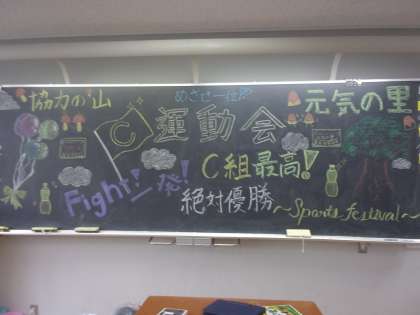 協力の山
めざせ一位!?
元気の里
C
運動会
C組最高!
Fight!一発!
絶対優勝
~Sports festival~